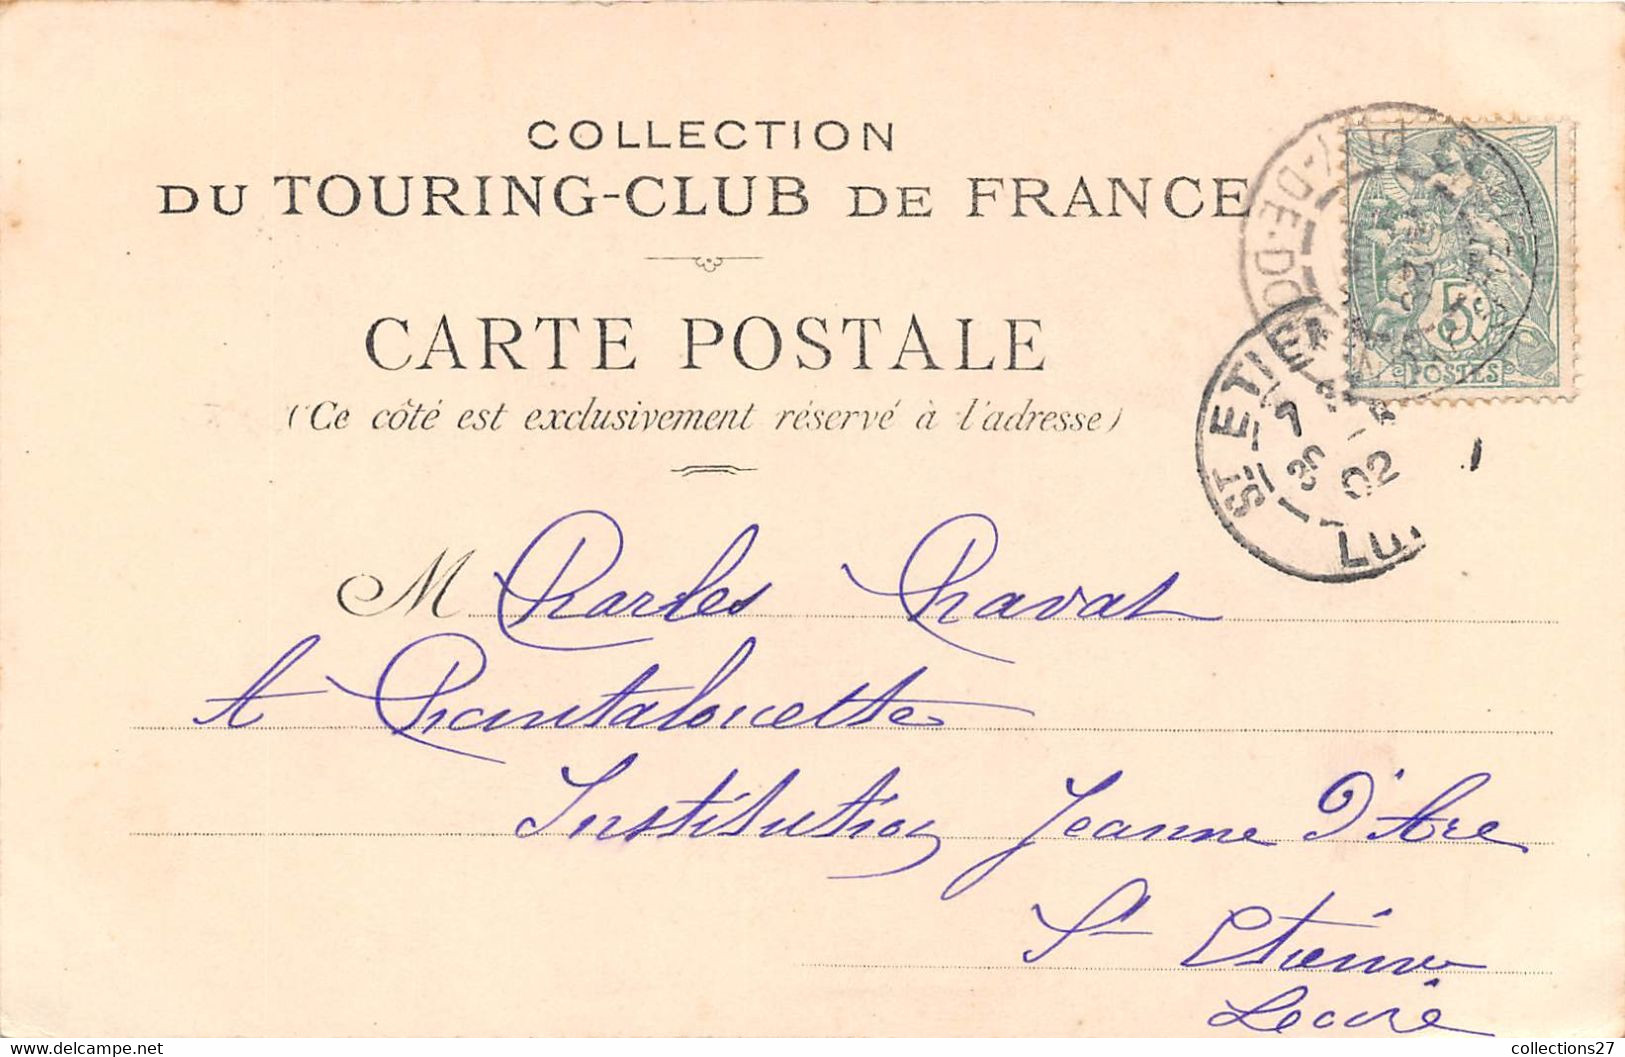 COLLECTION
DU TOURING-CLUB DE FRANCE
CARTE POSTALE
(Ce côté est exclusivement réservé à l'adresse)
PUY-DE-DO
5
POSTES
ST ETIEN
7
02
M Charles Chavat
A Chantalouette
Institution Jeanne D'Arc
St Etienne
Loire
collections27